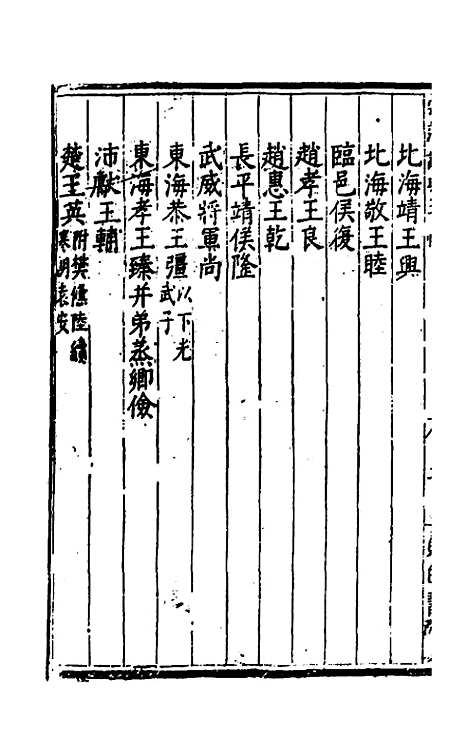 北海靖王興
北海敬王睦
臨邑侯復
趙孝王良
趙惠王乾
長平靖侯隆
武威將軍尚
東海恭王彊以下光武子
東海孝王臻并弟蒸鄉儉
沛獻王輔
楚王英附樊鯈陸續寒朗袁安